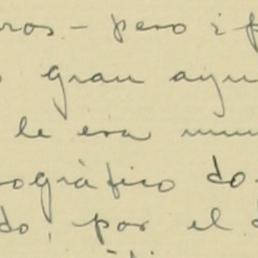 ros - pero i p
gran ayu
le era mu
ográfico do
do, por el